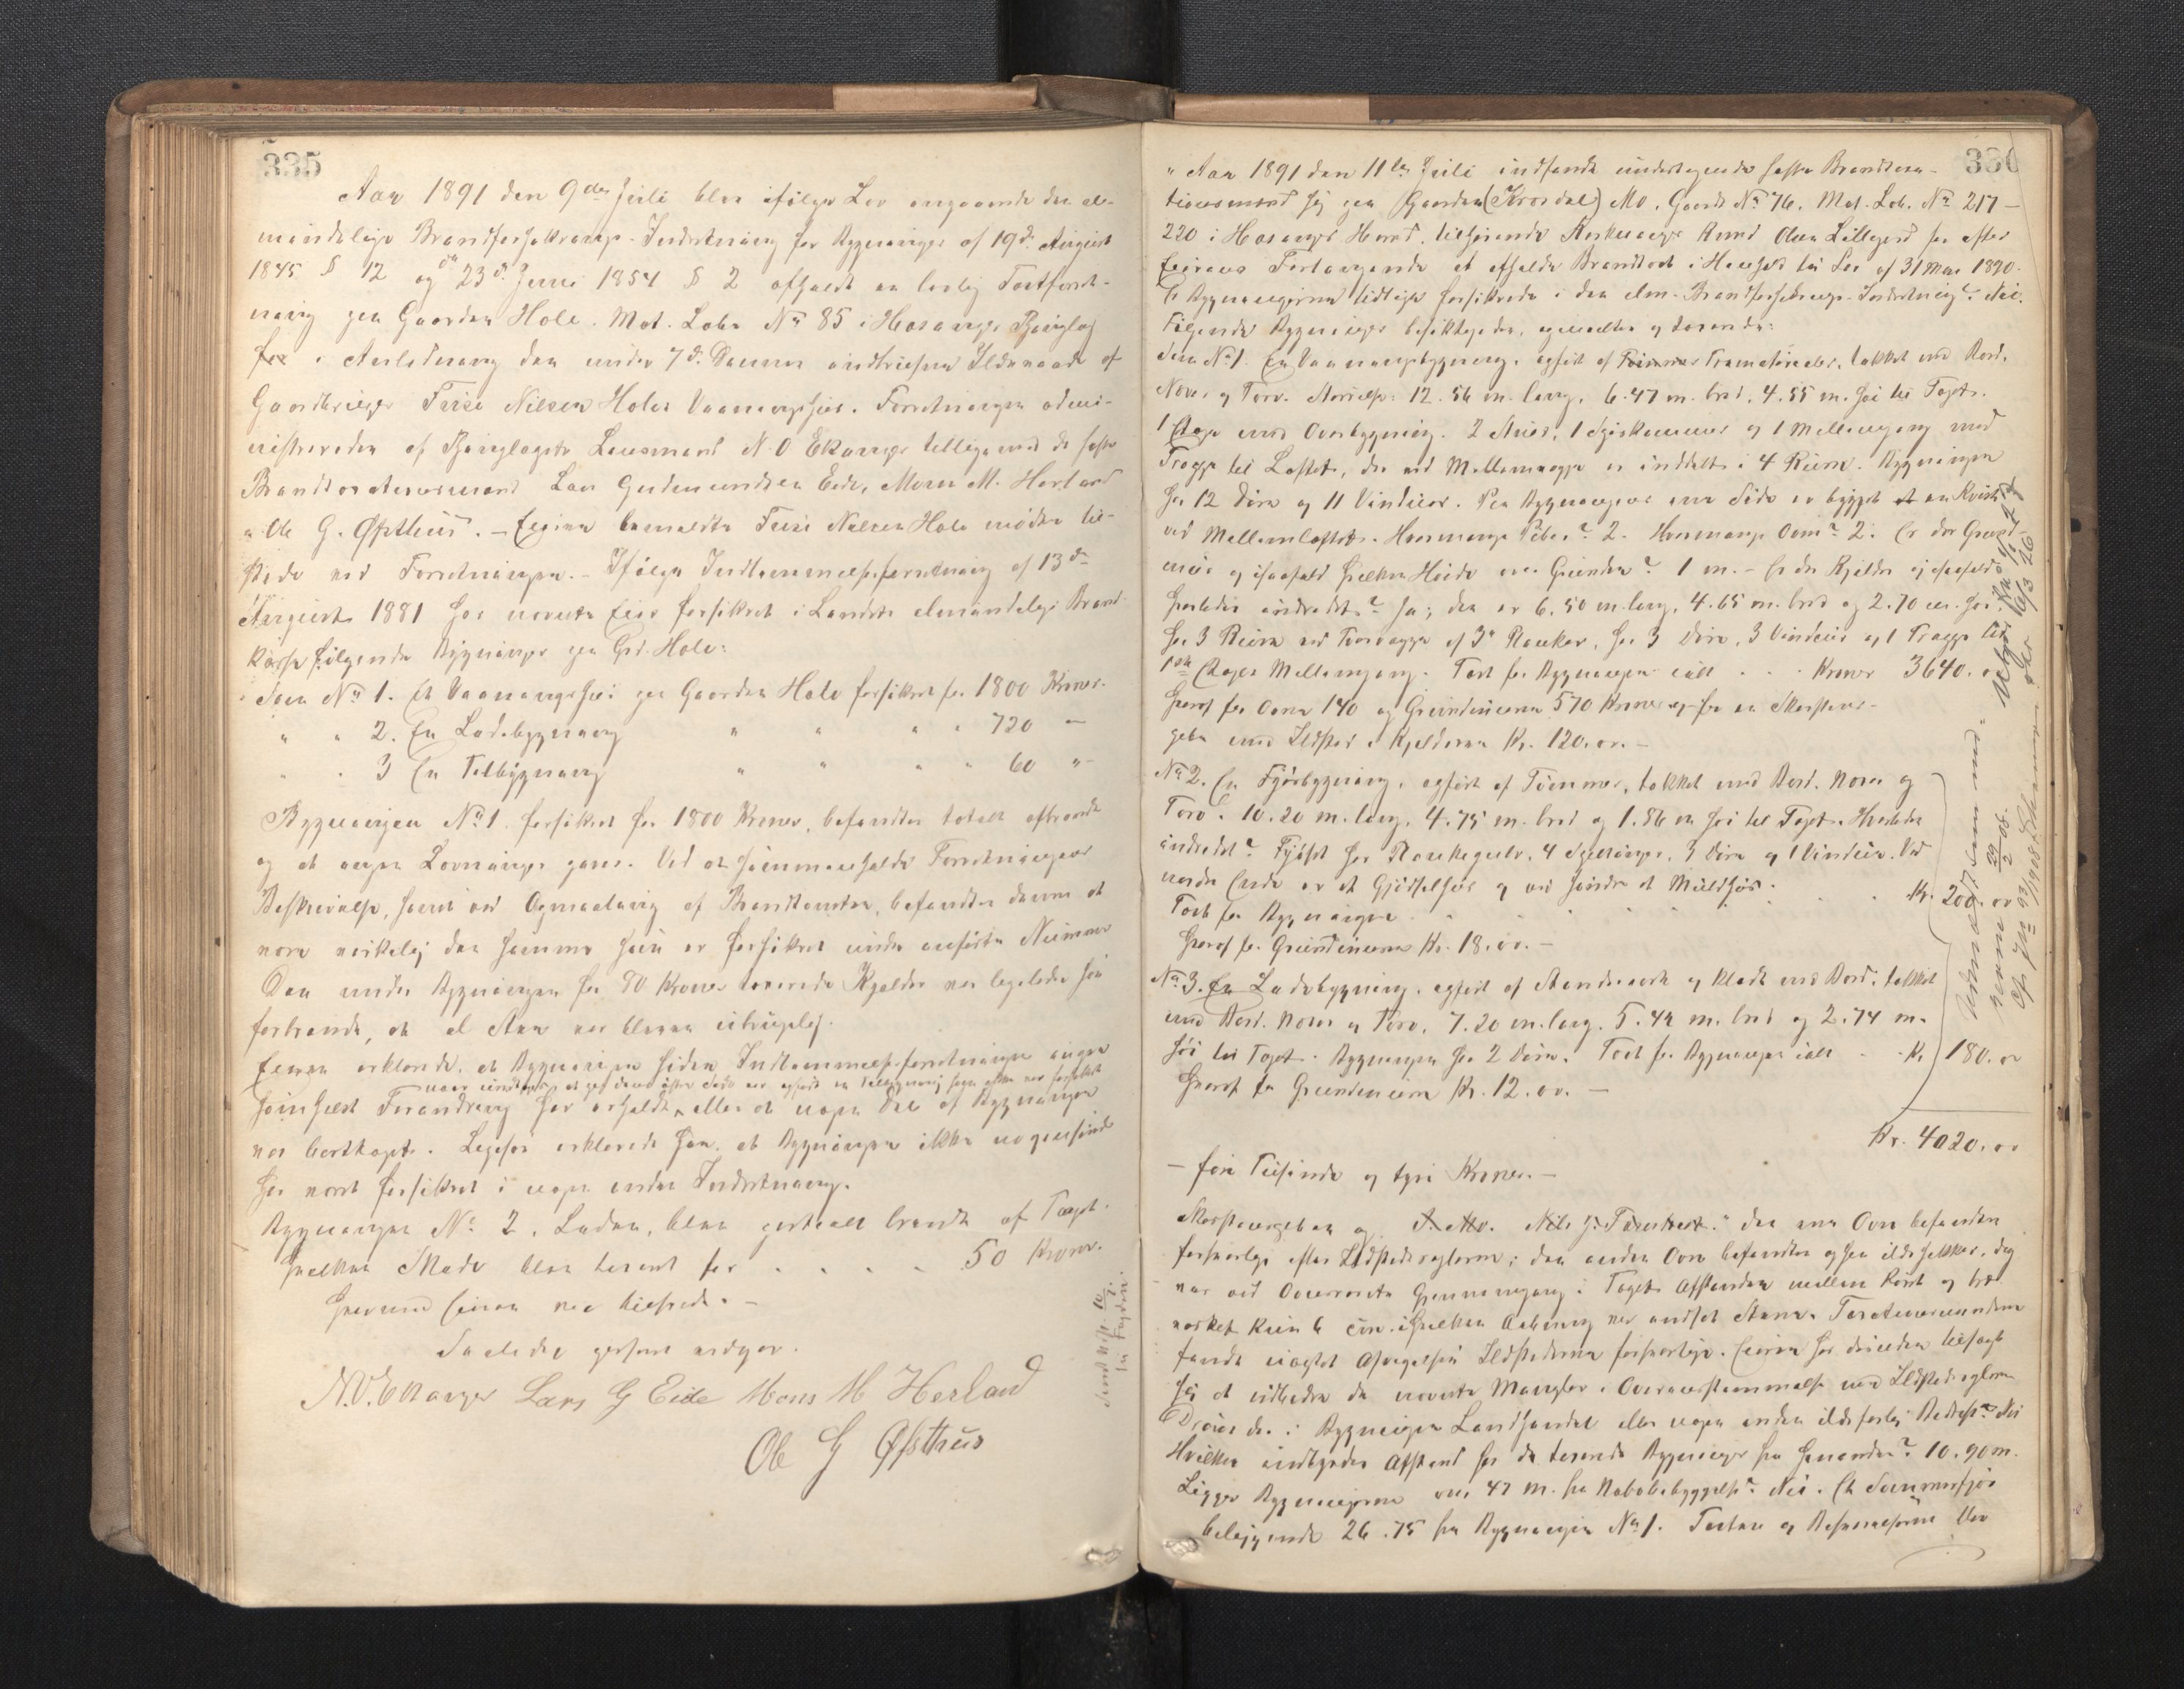 335
Aar 1891 den 9de Juli blev ifølge Lov angaaende den al-
mindelige Brandforsikrings-Indretning for Bygninger af 19de August
1845 § 12 og 23de Juni 1854 § 2 afholdt en lovlig Taxtforret-
ning paa Gaarden Hole. Mat. Løbe No 85 i Hosanger Thinglag
i Anledning den under 7de Dennes indtrufne Ildsvaade af
Gaardbruger Tusi Nilsen Holes Vaaningshus. Forretningen admi-
nistreredes af Thinglagets Lensmand N. O. Ekanger tilligemed de faste
Brandtaxationsmænd Lars Gudmundsen Eide, Mons M. Herland
og Ole G. Øpsthus. – Eieren bemeldte Tusi Nilsen Hole mødte til-
stede ved Forretningen. – Ifølge Indlemmelsesforretning af 13de
August 1881 har nævnte Eier forsikret i Landets almindelige Brand-
kasse følgende Bygninger paa Grd. Hole:
Som No 1. Et Vaaningshus paa Gaarden Hole forsikret for 1800 Kroner.
" " 2. En Ladebygning " " " " 720 –
" " 3 En Tilbygning " " " " 60 "
Bygningen No 1 forsikret for 1800 Kroner, befandtes totalt afbrændt
og at ingen Levninger gaves. Ved at sammenholde Forretningens
Beskrivelse, samt ved Opmaaling af Brandtomten, befandtes denne at
være virkelig den samme som er forsikret under anførte Nummer
Den under Bygningen for 80 Kroner taxerede Kjelder var ligeledes saa
forbrændt, at al Mur var bleven ubrugelig.
Eieren erklærede, at Bygningen siden Indlemmelsesforretningen ingen
naar undtages, at paa dens østre Side var opført en Tilbygning som ikke var forsikret
somhelst Forandring har erholdt, eller at nogen Del af Bygningen
var borttaget. Ligesaa erklærede han, at Bygningen ikke nogensinde
har været forsikret i nogen anden Indretning.
Bygningen No 2, Laden, blev partielt brændt af Taget.
hvilken Skade blev taxeret for . . . . . 50 Kroner.
hvormed Eieren var tilfreds. –
Saaledes passeret vidner.
N. O. Ekanger Lars G Eide Mons M Herland
Ole G Øpsthus
336
" Aar 1891 den 11te Juli indfandt undertegnede faste Brandtaxa-
tionsmænd sig paa Gaarden (Krosdal) Mo. Gaards No 76. Mat. Løb. No 217 –
220 i Hosanger Herred, tilhørende Lillegerd for efter
Eierens Forlangende at afholde Brandtaxt i Henhold til Lov af 31 Mai 1890.
Er Bygningerne tidligere forsikrede i den alm. Brandforsikrings-Indretning? Nei.
Følgende Bygninger besigtigedes, opmaaltes og taxeredes:
Som No 1. En Vaaningsbygning, opført af Tømmer, takket med Bord,
Næver og Torv. Størrelse: 12.56 m. lang, 6.47 m. bred, 4.55 m. høi til Taget.
1 Etage med Overbygning. 2 Stuer, 1 Spiskammer og 1 Mellemgang med
Trappe til Loftet, der ved Mellemvægge er inddelt i 4 Rum. Bygningen
har 12 Døre og 11 Vinduer. Paa Bygningens ene Side er bygget en Kvist
ved Mellemloftet. Hvormange Piber? 2. Hvormange Ovne? 2. Er der Grund-
mur og isaafald hvilken Høide over Grunden? 1 m. – Er der Kjelder og isaafald
hvorledes indredet? Ja; den er 6.50 m. lang, 4.65 m. bred og 2.70 m. høi.
har 3 Rum ved Tvervægge af 3" Planker, har 3 Døre, 3 Vinduer og 1 Trappe til
1ste Etages Mellemgang. Taxt for Bygningen ialt . . . Kroner 3640. "
Heraf for Ovne 140 og Grundmuren 570 Kroner og for en Skorstens-
pibe med Ildsted i Kjelderen Kr. 120.00. –
No 2. En Fjøsbygning, opført af Tømmer, takket med Bord, Næver og
Torv. 10.20 m. lang, 4.75 m. bred og 1.86 m høi til Taget. Hvorledes
indredet? Fjøset har Plankegulv, 4 Spiltouge, 3 Døre og 1 Vindue. Ved
nordre Ende er et Gjødselhus og ved søndre et Møldhus.
Taxt for Bygningen . . . . . Kr. 200.00
Heraf for Grundmuren Kr. 18.00. –
No 3. En Ladebygning, opført af Stendverk og klædt med Bord, takket
med Bord, Næver og Torv, 7.20 m. lang, 5.44 m. bred og 2.74 m.
høi til Taget. Bygningen har 2 Døre. Taxt for Bygningen ialt . . Kr. 180.00
Heraf for Grundmuren Kr. 12.00. –
Kr. 4020.00
– fire Tusinde og tyve Kroner. –
Skorstenspiben og den ene Ovn befandtes
forsvarlige efter Ildstedsreglerne; den anden Ovn befandtes ogsaa ildsikker, dog
var ved Ovnrørets Gjennemgang i Taget Afstanden mellem Røret og Træ-
værket kun 6 cm. i hvilken Aabning var indsat Stene. Taxationsmændene
fandt uagtet Afvigelsen Ildstederne forsvarlige. Eieren har desuden tilsagt
sig at udbedre de nævnte Mangler i Overensstemmelse med Ildstedsreglerne
Drives der i Bygningen Landhandel eller nogen anden ildsfarlig Bedrift? Nei
Hvilken indbyrdes Afstand har de taxerede Bygninger fra hinanden? 10.90 m.
Ligger Bygningerne over 47 m. fra Nabobebyggelse? Nei. Et Sommerfjøs
beliggende 26.75 fra Bygningen No 1. Taxten og Besvarelserne blev